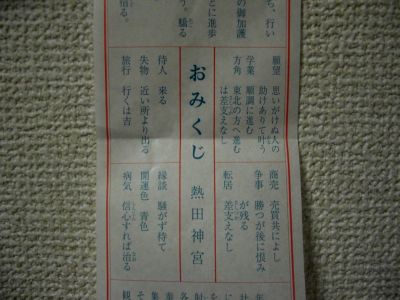 ち、行い
の御加護
とに進歩
う。驕る
宿る。
願望 思いがけぬ人の
助けありて叶う
学業 順調に進む
方角 東北の方へ進む
は差支えなし
商売 売買共によし
争事 勝つが後に恨み
が残る
転居 差支えなし
おみくじ 熱田神宮
待人 来る
失物 近い所より出る
旅行 行くは吉
縁談 騒がず待て
開運色 青色
病気 信心すれば治る